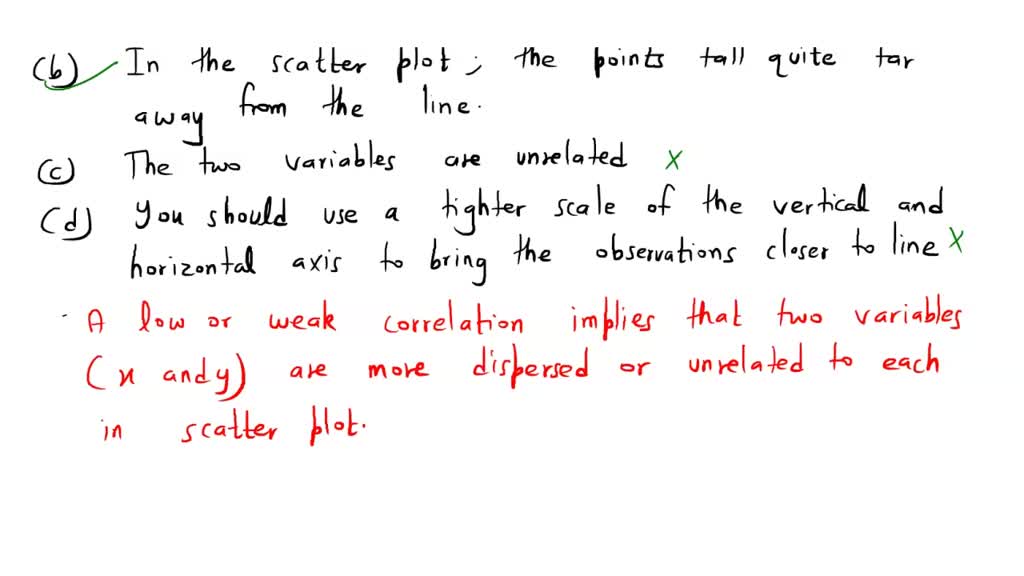 (b) In the scatter plot; the points tall quite tar
away from the line.
(c) The two variables are unrelated x
(d) You should use a tighter scale of the vertical and
horizontal axis to bring the observations closer to line x
A low or weak correlation implies that two variables
(x and y) are more dispersed or unrelated to each
in scatter plot.